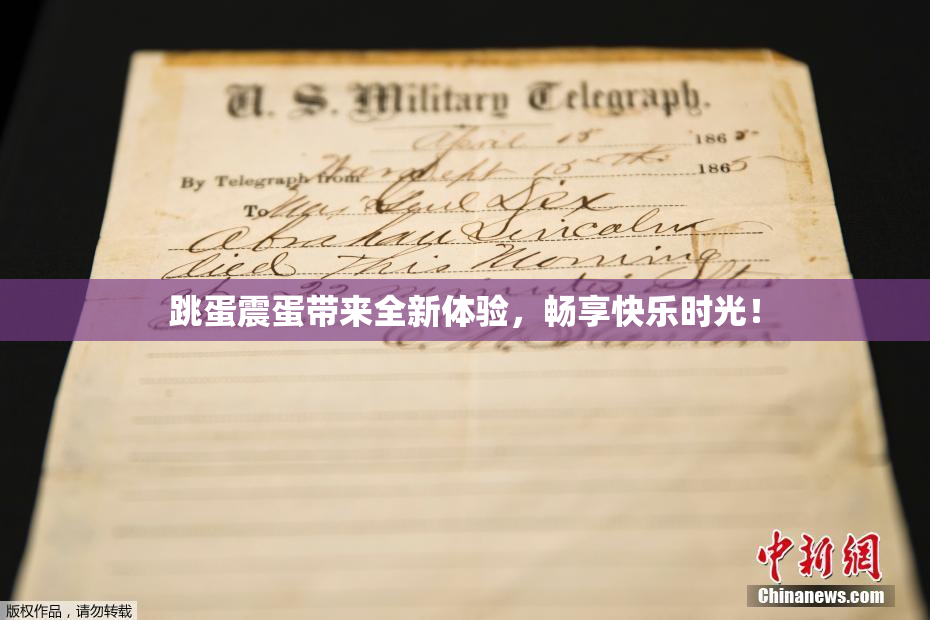 U. S. Military Telegraph.
April 15 1865
By Telegraph from War Dept 15th 1865
To Maj Genl Dix
Abraham Lincoln
died This Morning
at 22 minutes after
跳蛋震蛋带来全新体验，畅享快乐时光！
E. M. Stanton
中新网
Chinanews.com
版权作品，请勿转载